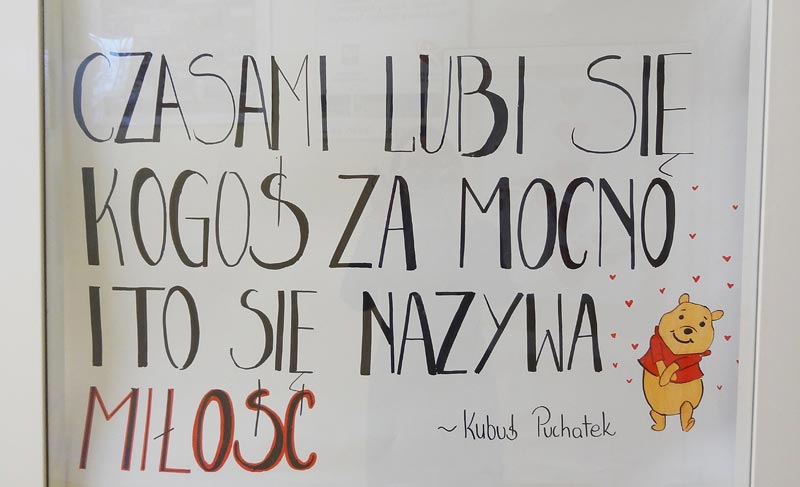 CZASAMI LUBI SIĘ
KOGOŚ ZA MOCNO
I TO SIĘ NAZYWA
MIŁOŚĆ
~Kubuś Puchatek